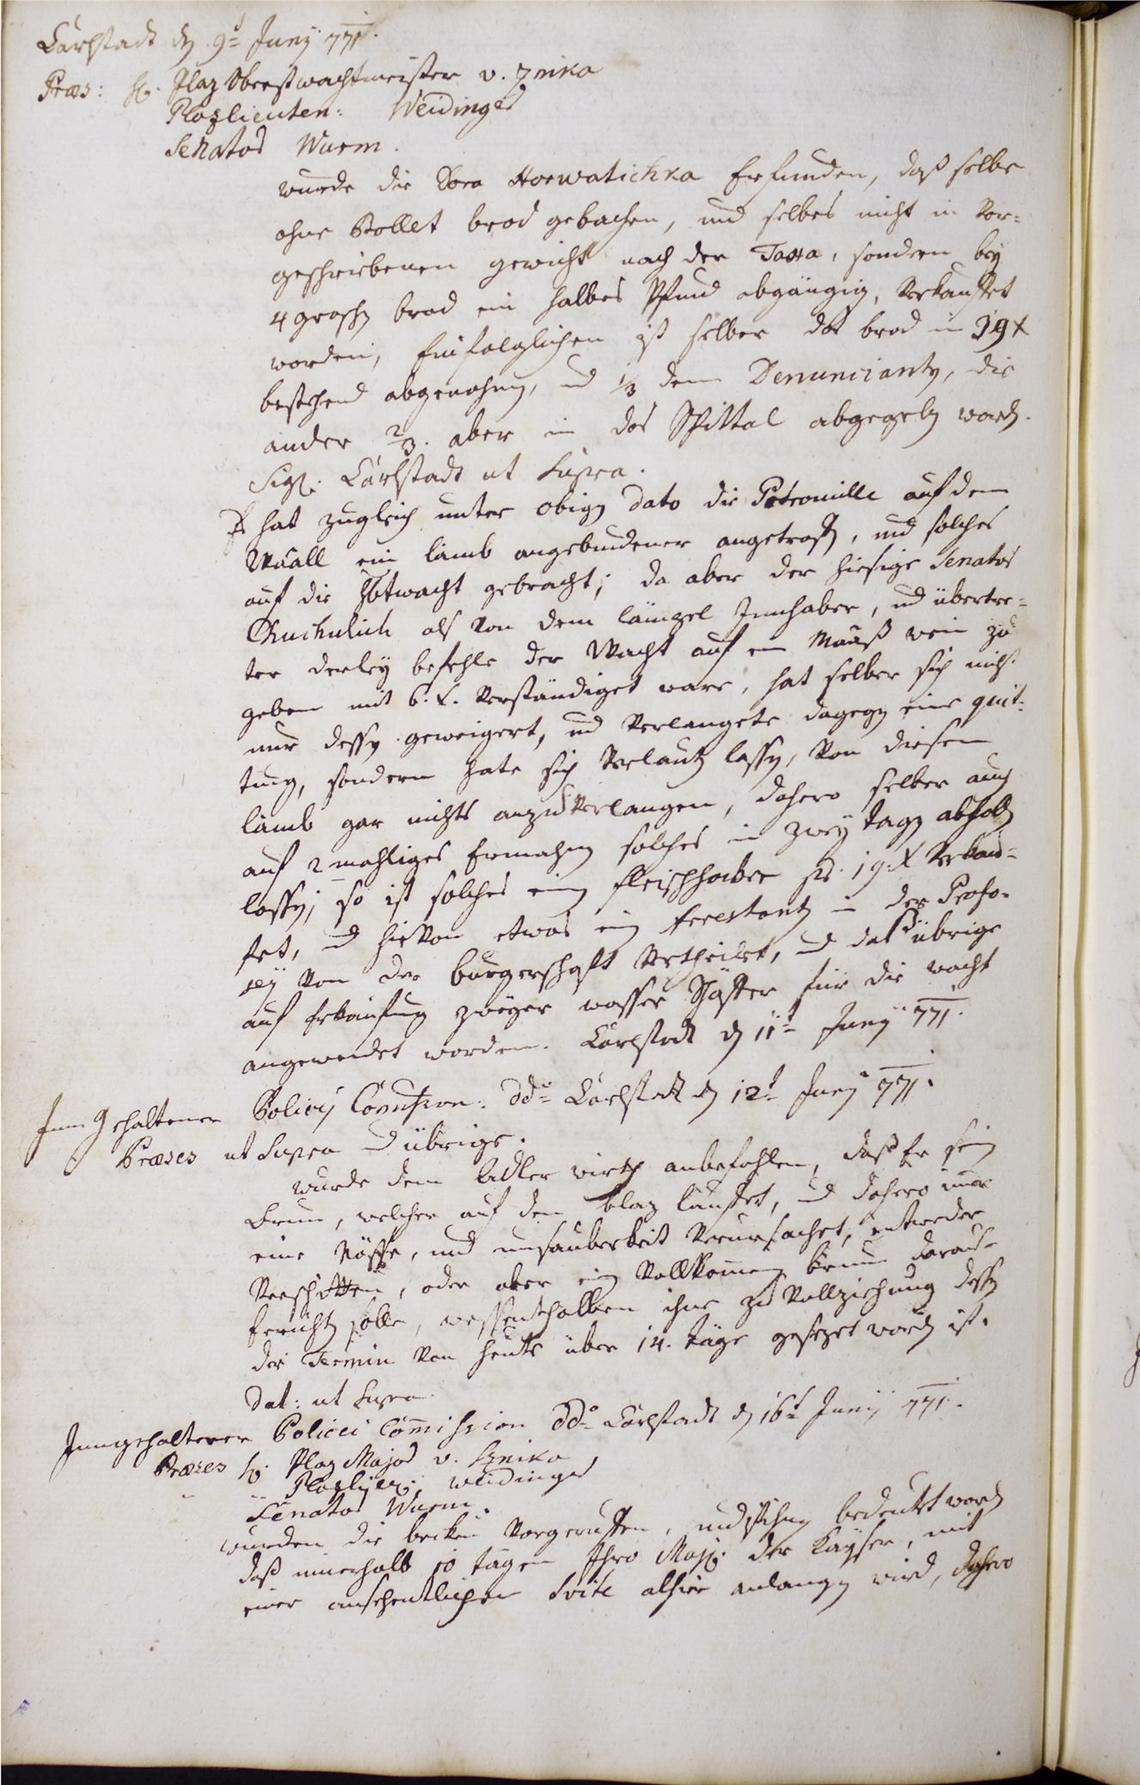 Carlstadt den 9t Junÿ 771.
Præs: H. Plaz Obrestwachtmeister v. Znika
Plazlieuten: Weidinger
Senator Wurm.
wurde die Dora Horwatichka erfunden, daß selbe
ohne Bollet brod gebachen, und selbes nicht in Vor=
geschriebenen gewicht nach der Taxa, sondern beÿ
4 groschen brod ein halbes Pfund abgängig, Verkauffet
worden, hinfolglichen ist selber das brod in 39 x
bestehend abgenohmen, und 1/3 dem Denuncianten, die
ander 2/3. aber in das Spittal abgegeben worden.
Sigl. Carlstadt ut Supra.
Es hat zugleich unter obigen dato die Patrouille auf dem
Wuall ein lamb angebundener angetroffen, und solches
auf die Hbtwacht gebracht; da aber der hiesige Senator
als Von dem lämpel Innhaber, und übertre=
ter derleÿ befehle der Wacht auf ein Maaß wein zu
geben mit 6. x. Verständiget ware, hat selber sich nicht
nur dessen geweigert, und Verlangete dagegen eine quit=
tung, sondern hate sich Verlauten lassen, Von diesem
lamb gar nichts anzuverlangen, dahero selber auch
auf 2 mahliges Ermahnen solches in zweÿ tagen abholen
lassen; so ist solches ein fleischhaker pr. 19 x Verkauf=
fet, und hievon etwas ein Arrestanten in der Profo=
seÿ Von der burgerschafft Vertheilet, und das übrige
auf Erkaufung zweÿer wasser Schäffer für die wacht
angewendet worden. Carlstadt den 11t Junÿ 771.
Inngehaltener Policeÿ Commission: ddo Carlstadt den 12t Junÿ 771.
Præses ut Supra und übrige.
wurde dem Adler wirth anbefohlen, daß Er sein
brunn, welcher auf den blaz lauffet, und dahero immer
eine Nässe, und unsauberkeit Verursachet, entweder
Verschütten, oder aber ein Vollkommen brunn daraus
herichten solle, wessenthalben ihme zu Vollziehung dessen
der Termin Von heute über 14. täge gesezet worden ist.
Dat: ut Supra.
Inngehaltener Policei Commission ddo Carlstadt den 16t Junÿ 771.
Præses H. Plaz Major v. Znika
Plazlieut: Weidinger
Senator Wurm.
wurden die becken Vorgeruffen, und ihnen bedeutet worden
daß innerhalb 10 tägen Ihro Maÿt. der Kaÿser, mit
einer ansehentlichen Svite alhier anlangen wird, dahero